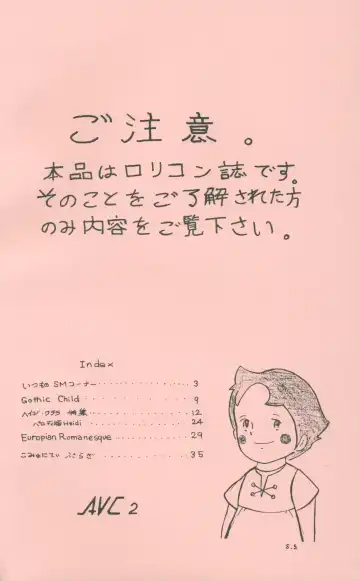 ご注意。
本品はロリコン誌です。
そのことをご了解された方
のみ内容をご覧下さい。
Index
いつもの SMコーナー 3
Gothic Child 9
ハイジ・クララ 12
Heidi 24
Europian Romanesque 29
35
AVC 2
S.S